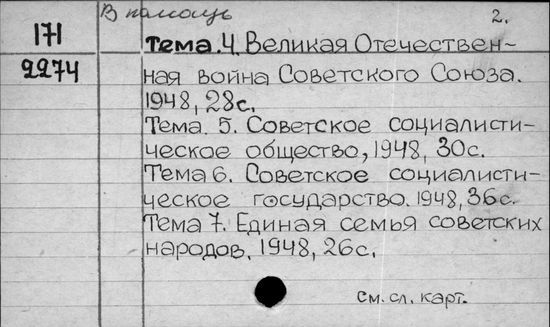 В помощь
2.
171
2274
Тема.4. Великая Отечествен-
ная война Советского Союза.
1948, 28с.
Тема. 5. Советское социалисти-
ческое общество, 1948, 30с.
Тема 6. Советское социалисти-
ческое государство. 1948, 36с.
Тема 7. Единая семья советских
народов. 1948, 26с.
См. сл. карт.